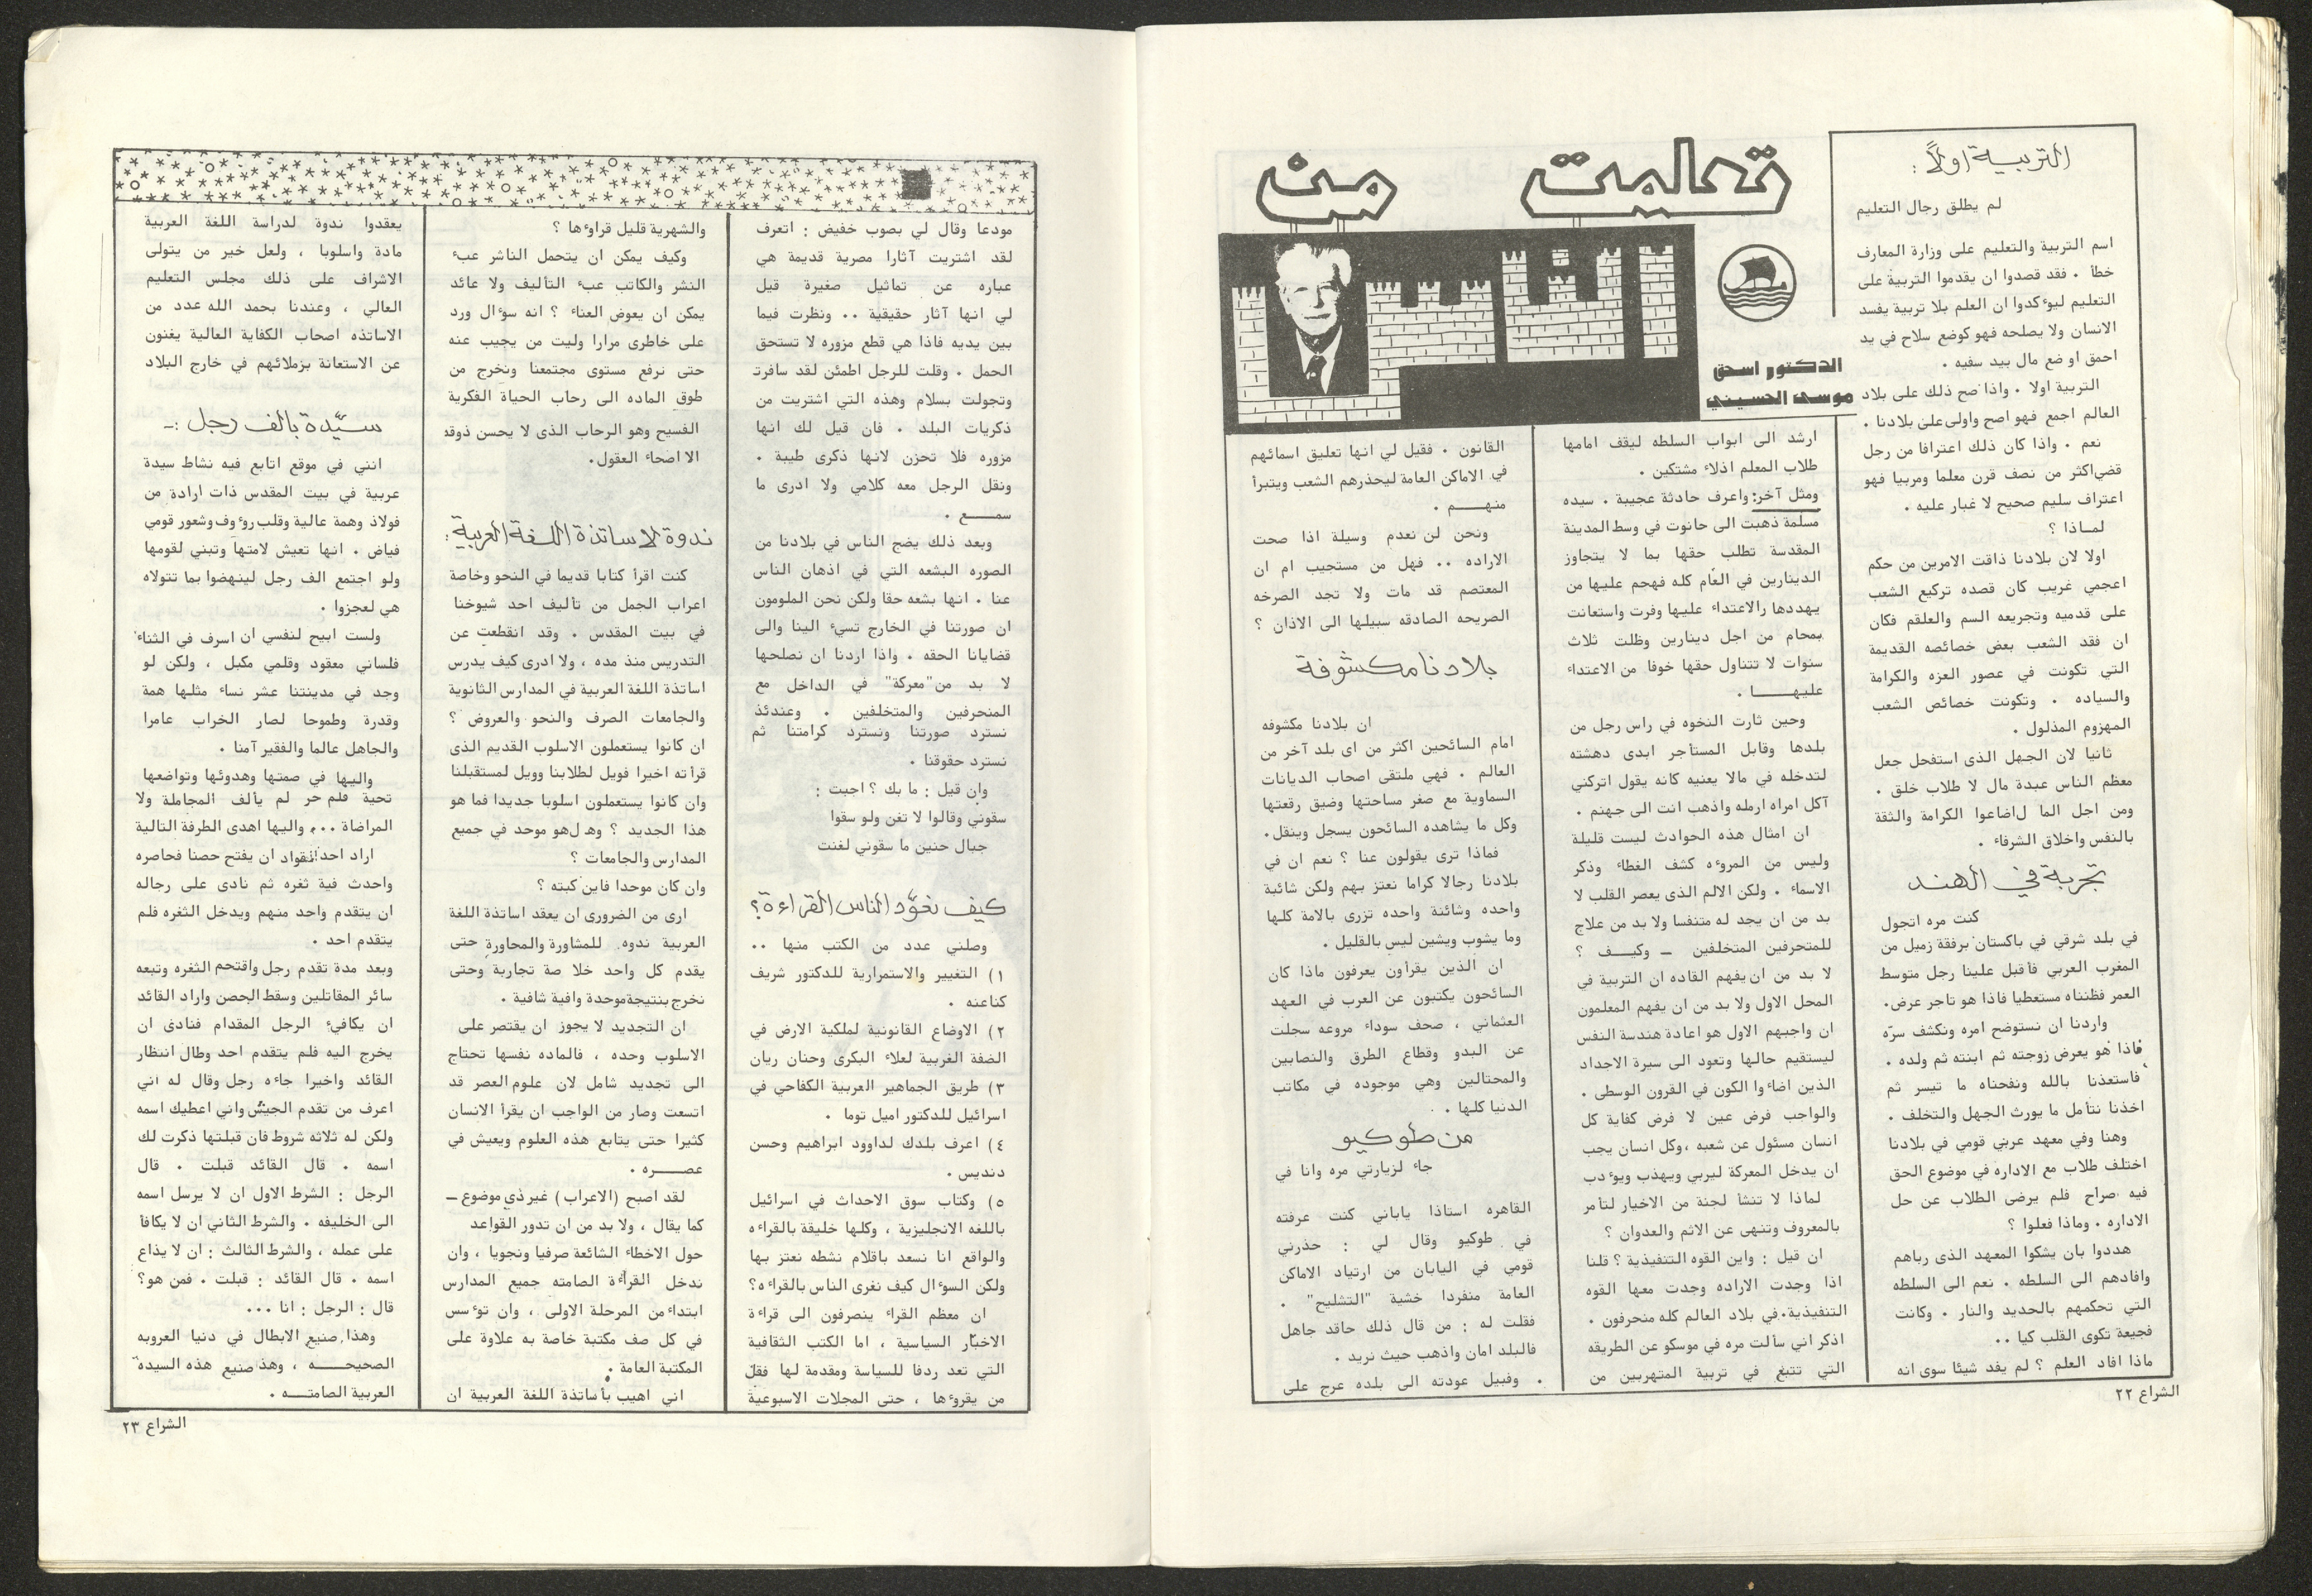 تعلمت من الناس
الدكتور اسحق
موسى الحسيني
التربية اولاً :
لم يطلق رجال التعليم
اسم التربية والتعليم على وزارة المعارف
خطأ . فقد قصدوا ان يقدموا التربية على
التعليم ليوٴكدوا ان العلم بلا تربية يفسد
الانسان ولا يصلحه فهو كوضع سلاح في يد
احمق او ضع مال بيد سفيه .
التربية اولا . واذا صح ذلك على بلاد
العالم اجمع فهو اصح واولى على بلادنا .
نعم . واذا كان ذلك اعترافا من رجل
قضى اكثر من نصف قرن معلما ومربيا فهو
اعتراف سليم صحيح لا غبار عليه .
لماذا ؟
اولا لان بلادنا ذاقت الامرين من حكم
اعجمي غريب كان قصده تركيع الشعب
على قدميه وتجريعه السم والعلقم فكان
ان فقد الشعب بعض خصائصه القديمة
التي تكونت في عصور العزه والكرامة
والسياده . وتكونت خصائص الشعب
المهزوم المذلول .
ثانيا لان الجهل الذى استفحل جعل
معظم الناس عبدة مال لا طلاب خلق .
ومن اجل الما ل اضاعوا الكرامة والثقة
بالنفس واخلاق الشرفاء .
تجربة في الهند
كنت مره اتجول
في بلد شرقي في باكستان برفقة زميل من
المغرب العربي فأقبل علينا رجل متوسط
العمر فظنناه مستعطيا فاذا هو تاجر عرض.
واردنا ان نستوضح امره ونكشف سرّه
فاذا هو يعرض زوجته ثم ابنته ثم ولده .
فاستعذنا بالله ونفحناه ما تيسر ثم
اخذنا نتأمل ما يورث الجهل والتخلف .
وهنا وفي معهد عربي قومي في بلادنا
اختلف طلاب مع الاداره في موضوع الحق
فيه صراح فلم يرضى الطلاب عن حل
الاداره . وماذا فعلوا ؟
هددوا بان يشكوا المعهد الذى رباهم
وافادهم الى السلطه . نعم الى السلطه
التي تحكمهم بالحديد والنار . وكانت
فجيعة تكوى القلب كيا ..
ماذا افاد العلم ؟ لم يفد شيئا سوى انه
ارشد الى ابواب السلطه ليقف امامها
طلاب المعلم اذلاء مشتكين .
ومثل آخر: واعرف حادثة عجيبة . سيده
مسلمة ذهبت الى حانوت في وسط المدينة
المقدسة تطلب حقها بما لا يتجاوز
الدينارين في العام كله فهجم عليها من
يهددها بالاعتداء عليها وفرت واستعانت
بمحام من اجل دينارين وظلت ثلاث
سنوات لا تتناول حقها خوفا من الاعتداء
عليهـــا .
وحين ثارت النخوه في راس رجل من
بلدها وقابل المستأجر ابدى دهشته
لتدخله في مالا يعنيه كانه يقول اتركني
آكل امراه ارمله واذهب انت الى جهنم .
ان امثال هذه الحوادث ليست قليلة
وليس من المروٴه كشف الغطاء وذكر
الاسماء . ولكن الالم الذى يعصر القلب لا
بد من ان يجد له متنفسا ولا بد من علاج
للمتحرفين المتخلفين – وكيــف ؟
لا بد من ان يفهم القاده ان التربية في
المحل الاول ولا بد من ان يفهم المعلمون
ان واجبهم الاول هو اعادة هندسة النفس
ليستقيم حالها وتعود الى سيرة الاجداد
الذين اضاءوا الكون في القرون الوسطى .
والواجب فرض عين لا فرض كفاية كل
انسان مسئول عن شعبه ،وكل انسان يجب
ان يدخل المعركة ليربي ويهذب ويوٴدب
لماذا لا تنشأ لجنة من الاخيار لتأمر
بالمعروف وتنهى عن الاثم والعدوان ؟
ان قيل : واين القوه التنفيذية ؟ قلنا
اذا وجدت الاراده وجدت معها القوه
التنفيذية.في بلاد العالم كله منحرفون .
اذكر اني سألت مره في موسكو عن الطريقه
التي تتبع في تربية المتهربين من
القانون . فقيل لي انها تعليق اسمائهم
في الاماكن العامة ليحذرهم الشعب ويتبرأ
منهـــم .
ونحن لن نعدم وسيلة اذا صحت
الاراده .. فهل من مستجيب ام ان
المعتصم قد مات ولا تجد الصرخه
الصريحه الصادقه سبيلها الى الاذان ؟
بلادنا مكشوفة
ان بلادنا مكشوفه
امام السائحين اكثر من اى بلد آخر من
العالم . فهي ملتقى اصحاب الديانات
السماوية مع صغر مساحتها وضيق رقعتها
وكل ما يشاهده السائحون يسجل وينقل.
فماذا ترى يقولون عنا ؟ نعم ان في
بلادنا رجالا كراما نعتز بهم ولكن شائبة
واحده وشائنة واحده تزرى بالامة كلها
وما يشوب ويشين ليس بالقليل .
ان الذين يقرأون يعرفون ماذا كان
السائحون يكتبون عن العرب في العهد
العثماني ، صحف سوداء مروعه سجلت
عن البدو وقطاع الطرق والنصابين
والمحتالين وهي موجوده في مكاتب
الدنيا كلها .
من طوكيو
جاء لزيارتي مره وانا في
القاهره استاذا ياباني كنت عرفته
في طوكيو وقال لي : حذرني
قومي في اليابان من ارتياد الاماكن
العامة منفردا خشية "التشليح" .
فقلت له : من قال ذلك حاقد جاهل
فالبلد امان واذهب حيث تريد .
وقبيل عودته الى بلده عرج على
الشراع ٢٢
مودعا وقال لي بصوب خفيض : اتعرف
لقد اشتريت آثارا مصرية قديمة هي
عباره عن تماثيل صغيرة قيل
لي انها آثار حقيقية .. ونظرت فيما
بين يديه فاذا هي قطع مزوره لا تستحق
الحمل . وقلت للرجل اطمئن لقد سافرت
وتجولت بسلام وهذه التي اشتريت من
ذكريات البلد . فان قيل لك انها
مزوره فلا تحزن لانها ذكرى طيبة .
ونقل الرجل معه كلامي ولا ادرى ما
سمـــع .
وبعد ذلك يضج الناس في بلادنا من
الصوره البشعه التي في اذهان الناس
عنا . انها بشعه حقا ولكن نحن الملومون
ان صورتنا في الخارج تسيء الينا والى
قضايانا الحقه . واذا اردنا ان نصلحها
لا بد من "معركة" في الداخل مع
المنحرفين والمتخلفين . وعندئذ
نسترد صورتنا ونسترد كرامتنا ثم
نسترد حقوقنا .
وان قيل : ما بك ؟ اجبت :
سقوني وقالوا لا تغن ولو سقوا
جبال حنين ما سقوني لغنت
كيف نعوّد الناس القراءة؟
وصلني عدد من الكتب منها ..
١) التغيير والاستمرارية للدكتور شريف
كناعنه .
٢) الاوضاع القانونية لملكية الارض في
الضفة الغربية لعلاء البكرى وحنان ريان
٣) طريق الجماهير العربية الكفاحي في
اسرائيل للدكتور اميل توما .
٤) اعرف بلدك لداوود ابراهيم وحسن
دنديس .
٥) وكتاب سوق الاحداث في اسرائيل
باللغه الانجليزية ، وكلها خليقة بالقراءه
والواقع انا نسعد باقلام نشطه نعتز بها
ولكن السوٴال كيف نغرى الناس بالقراءه؟
ان معظم القراء ينصرفون الى قراءة
الاخبار السياسية ، اما الكتب الثقافية
التي تعد ردفا للسياسة ومقدمة لها فقلّ
من يقروٴها ، حتى المجلات الاسبوعية
والشهرية قليل قراوٴها ؟
وكيف يمكن ان يتحمل الناشر عبء
النشر والكاتب عبء التأليف ولا عائد
يمكن ان يعوض العناء ؟ انه سوٴال ورد
على خاطرى مرارا وليت من يجيب عنه
حتى نرفع مستوى مجتمعنا ونخرج من
طوق الماده الى رحاب الحياة الفكرية
الفسيح وهو الرحاب الذى لا يحسن ذوقه
الا اصحاء العقول.
ندوة لاساتذة اللغة العربية :
كنت اقرأ كتابا قديما في النحو وخاصة
اعراب الجمل من تأليف احد شيوخنا
في بيت المقدس . وقد انقطعت عن
التدريس منذ مده ، ولا ادرى كيف يدرس
اساتذة اللغة العربية في المدارس الثانوية
والجامعات الصرف والنحو والعروض ؟
ان كانوا يستعملون الاسلوب القديم الذى
قرأته اخيرا فويل لطلابنا وويل لمستقبلنا
وان كانوا يستعملون اسلوبا جديدا فما هو
هذا الجديد ؟ وهـل هو موحد في جميع
المدارس والجامعات ؟
وان كان موحدا فاين كبته ؟
ارى من الضرورى ان يعقد اساتذة اللغة
العربية ندوه للمشاورة والمحاورة حتى
يقدم كل واحد خلا صة تجاربة وحتى
نخرج بنتيجة موحدة وافية شافية .
ان التجديد لا يجوز ان يقتصر على
الاسلوب وحده ، فالماده نفسها تحتاج
الى تجديد شامل لان علوم العصر قد
اتسعت وصار من الواجب ان يقرأ الانسان
كثيرا حتى يتابع هذه العلوم ويعيش في
عصـــره .
لقد اصبح (الاعراب) غير ذي موضوع –
كما يقال ، ولا بد من ان تدور القواعد
حول الاخطاء الشائعة صرفيا ونحويا ، وان
ندخل القراءة الصامته جميع المدارس
ابتداء من المرحلة الاولى ، وان توٴسس
في كل صف مكتبة خاصة به علاوة على
المكتبة العامة .
اني اهيب بأساتذة اللغة العربية ان
يعقدوا ندوة لدراسة اللغة العربية
مادة واسلوبا ، ولعل خير من يتولى
الاشراف على ذلك مجلس التعليم
العالي ، وعندنا بحمد الله عدد من
الاساتذه اصحاب الكفاية العالية يغنون
عن الاستعانة بزملائهم في خارج البلاد
سيّدة بالف رجل :-
انني في موقع اتابع فيه نشاط سيدة
عربية في بيت المقدس ذات ارادة من
فولاذ وهمة عالية وقلب روٴوف وشعور قومي
فياض . انها تعيش لامتها وتبني لقومها
ولو اجتمع الف رجل لينهضوا بما تتولاه
هي لعجزوا .
ولست ابيح لنفسي ان اسرف في الثناء
فلساني معقود وقلمي مكبل ، ولكن لو
وجد في مدينتنا عشر نساء مثلها همة
وقدرة وطموحا لصار الخراب عامرا
والجاهل عالما والفقير آمنا .
واليها في صمتها وهدوئها وتواضعها
تحية قلم حر لم يألف المجاملة ولا
المراضاة ... واليها اهدى الطرفة التالية
اراد احد القواد ان يفتح حصنا فحاصره
واحدث فية ثغره ثم نادى على رجاله
ان يتقدم واحد منهم ويدخل الثغره فلم
يتقدم احد .
وبعد مدة تقدم رجل واقتحم الثغره وتبعه
سائر المقاتلين وسقط الحصن واراد القائد
ان يكافيء الرجل المقدام فنادى ان
يخرج اليه فلم يتقدم احد وطال انتظار
القائد واخيرا جاءه رجل وقال له اني
اعرف من تقدم الجيش واني اعطيك اسمه
ولكن له ثلاثه شروط فان قبلتها ذكرت لك
اسمه . قال القائد قبلت . قال
الرجل : الشرط الاول ان لا يرسل اسمه
الى الخليفه . والشرط الثاني ان لا يكافأ
على عمله ، والشرط الثالث : ان لا يذاع
اسمه . قال القائد : قبلت . فمن هو؟
قال : الرجل : انا ...
وهذا صنيع الابطال في دنيا العروبه
الصحيحـــه ، وهذ صنيع هذه السيده
العربية الصامتــه .
الشراع ٢٣